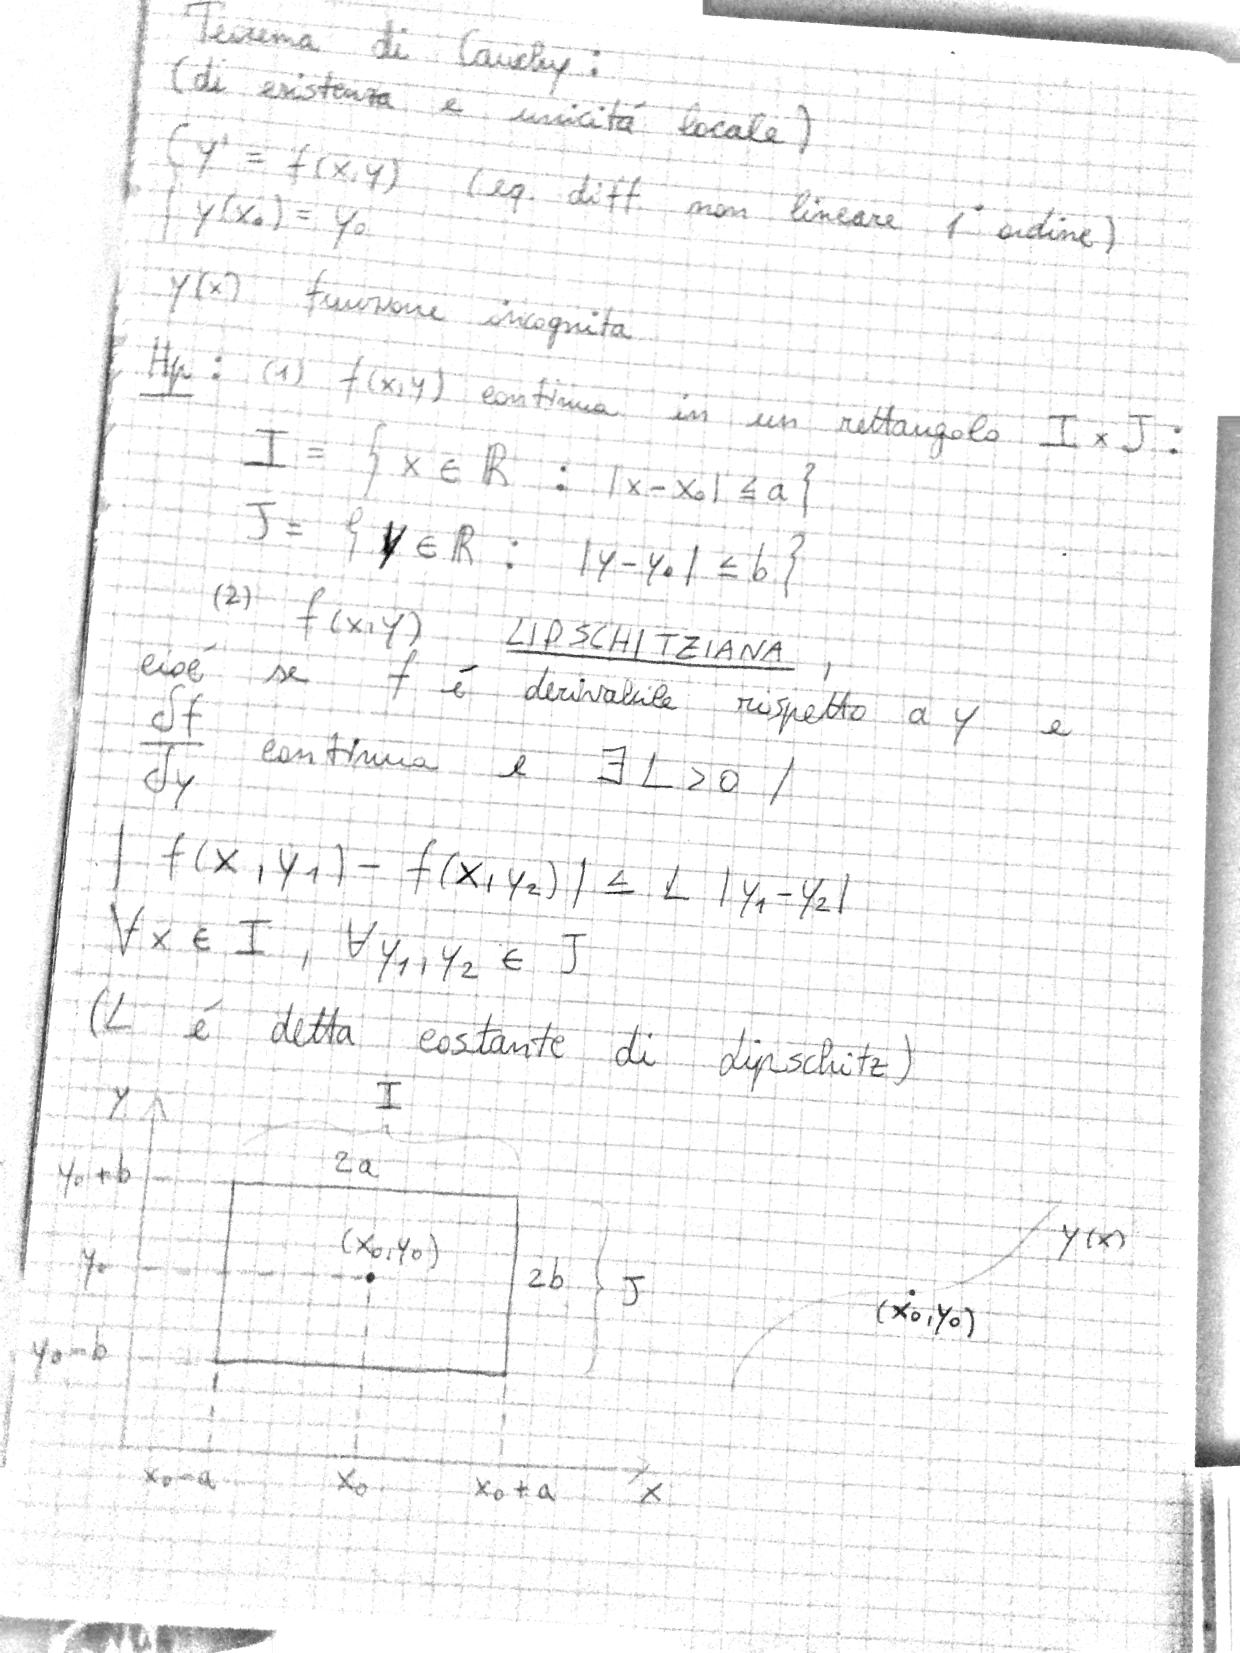 Teorema di Cauchy :
(di esistenza e unicitá locale)
{ y' = f(x,y) (eq. diff. non lineare 1° ordine)
{ y(x₀) = y₀
y(x) funzione incognita
Hp : (1) f(x,y) continua in un rettangolo I × J :
I = { x ∈ ℝ : |x-x₀| ≤ a }
J = { y ∈ ℝ : |y-y₀| ≤ b }
(2) f(x,y) LIPSCHITZIANA ,
cioé se f é derivabile rispetto a y e
∂f/∂y continua e ∃ L > 0 /
| f(x,y₁) - f(x,y₂) | ≤ L |y₁-y₂|
∀ x ∈ I , ∀ y₁, y₂ ∈ J
(L é detta costante di Lipschitz)
y I
y₀ + b 2a
(x₀,y₀) y(x)
y₀ 2b J
(x₀,y₀)
y₀ - b
x₀-a x₀ x₀+a x